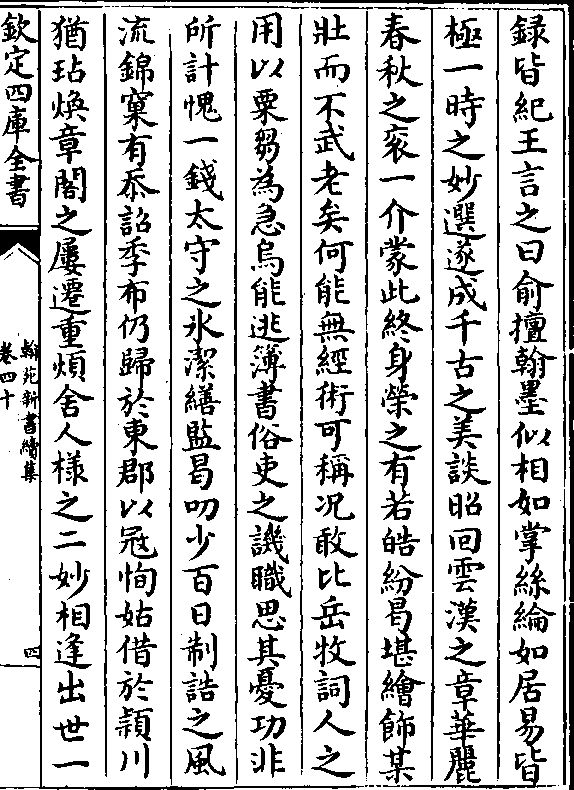 録皆紀王言之曰俞擅翰墨似相如掌絲綸如居易皆
極一時之妙選遂成千古之美談昭回雲漢之章華麗
春秋之衮一介蒙此終身榮之有若皓紛曷堪繪飾某
壯而不武老矣何能無經術可稱况敢比岳牧詞人之
用以粟芻為急烏能逃簿書俗吏之譏職思其憂功非
所計愧一錢太守之氷潔繕監曷叨少百日制誥之風
流錦窠有忝詔季布仍歸於東郡以冦恂姑借於潁川
猶玷煥章閣之屢遷重煩舍人様之二妙相逢出世一
欽定四庫全書
翰苑新書續集
卷四十
四